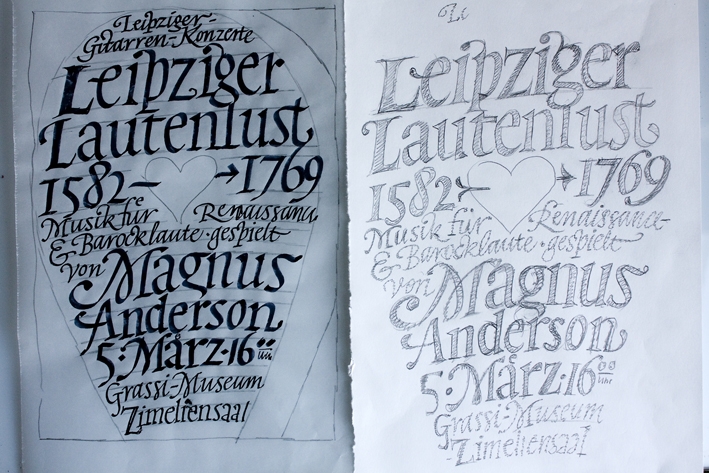 Leipziger-
Gitarren-Konzerte
Leipziger
Lautenlust
1582–→1769
Musik für Renaissance
& Barocklaute·gespielt
von Magnus
Anderson
5·März·16°° Uhr
Grassi-Museum
Zimeliensaal
Le
Leipziger
Lautenlust
1582–→1769
Musik für Renaissance-
& Barocklaute·gespielt
von Magnus
Anderson
5·März·16°° Uhr
Grassi-Museum
Zimeliensaal